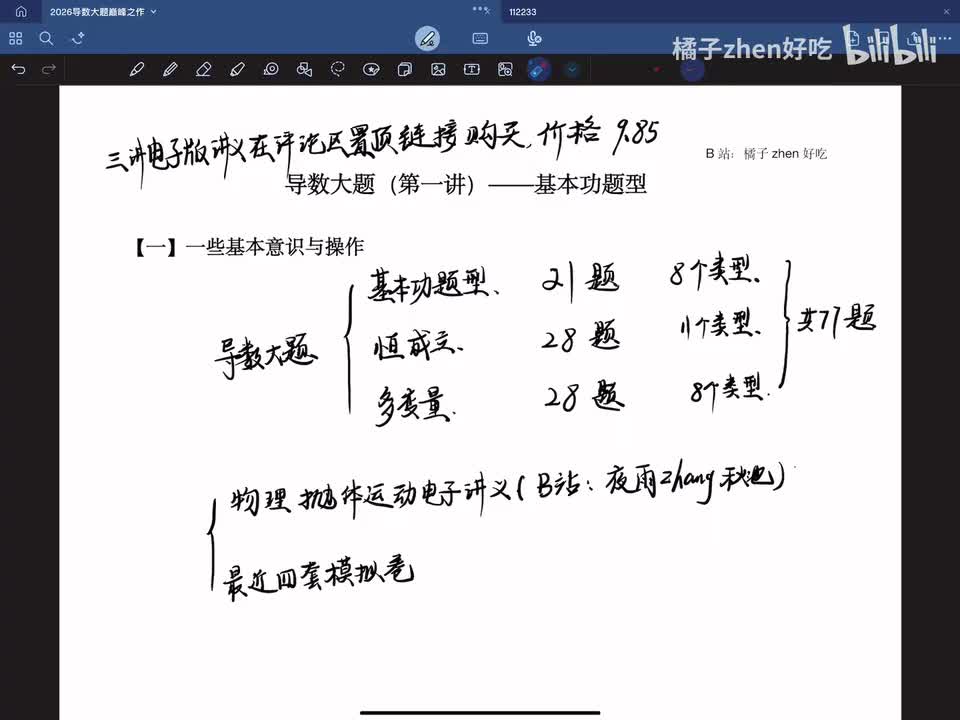 2026导数大题巅峰之作
112233
橘子zhen好吃 bilibili
三讲电子版讲义在评论区置顶链接购买,价格 9.85
B 站：橘子 zhen 好吃
导数大题（第一讲）——基本功题型
【一】一些基本意识与操作
基本功题型、 21 题 8个类型、
导数大题 恒成立、 28 题 11个类型、 共77题
多变量. 28 题 8个类型.
物理 抛体运动电子讲义(B站：夜雨zhang秋池)
最近四套模拟卷